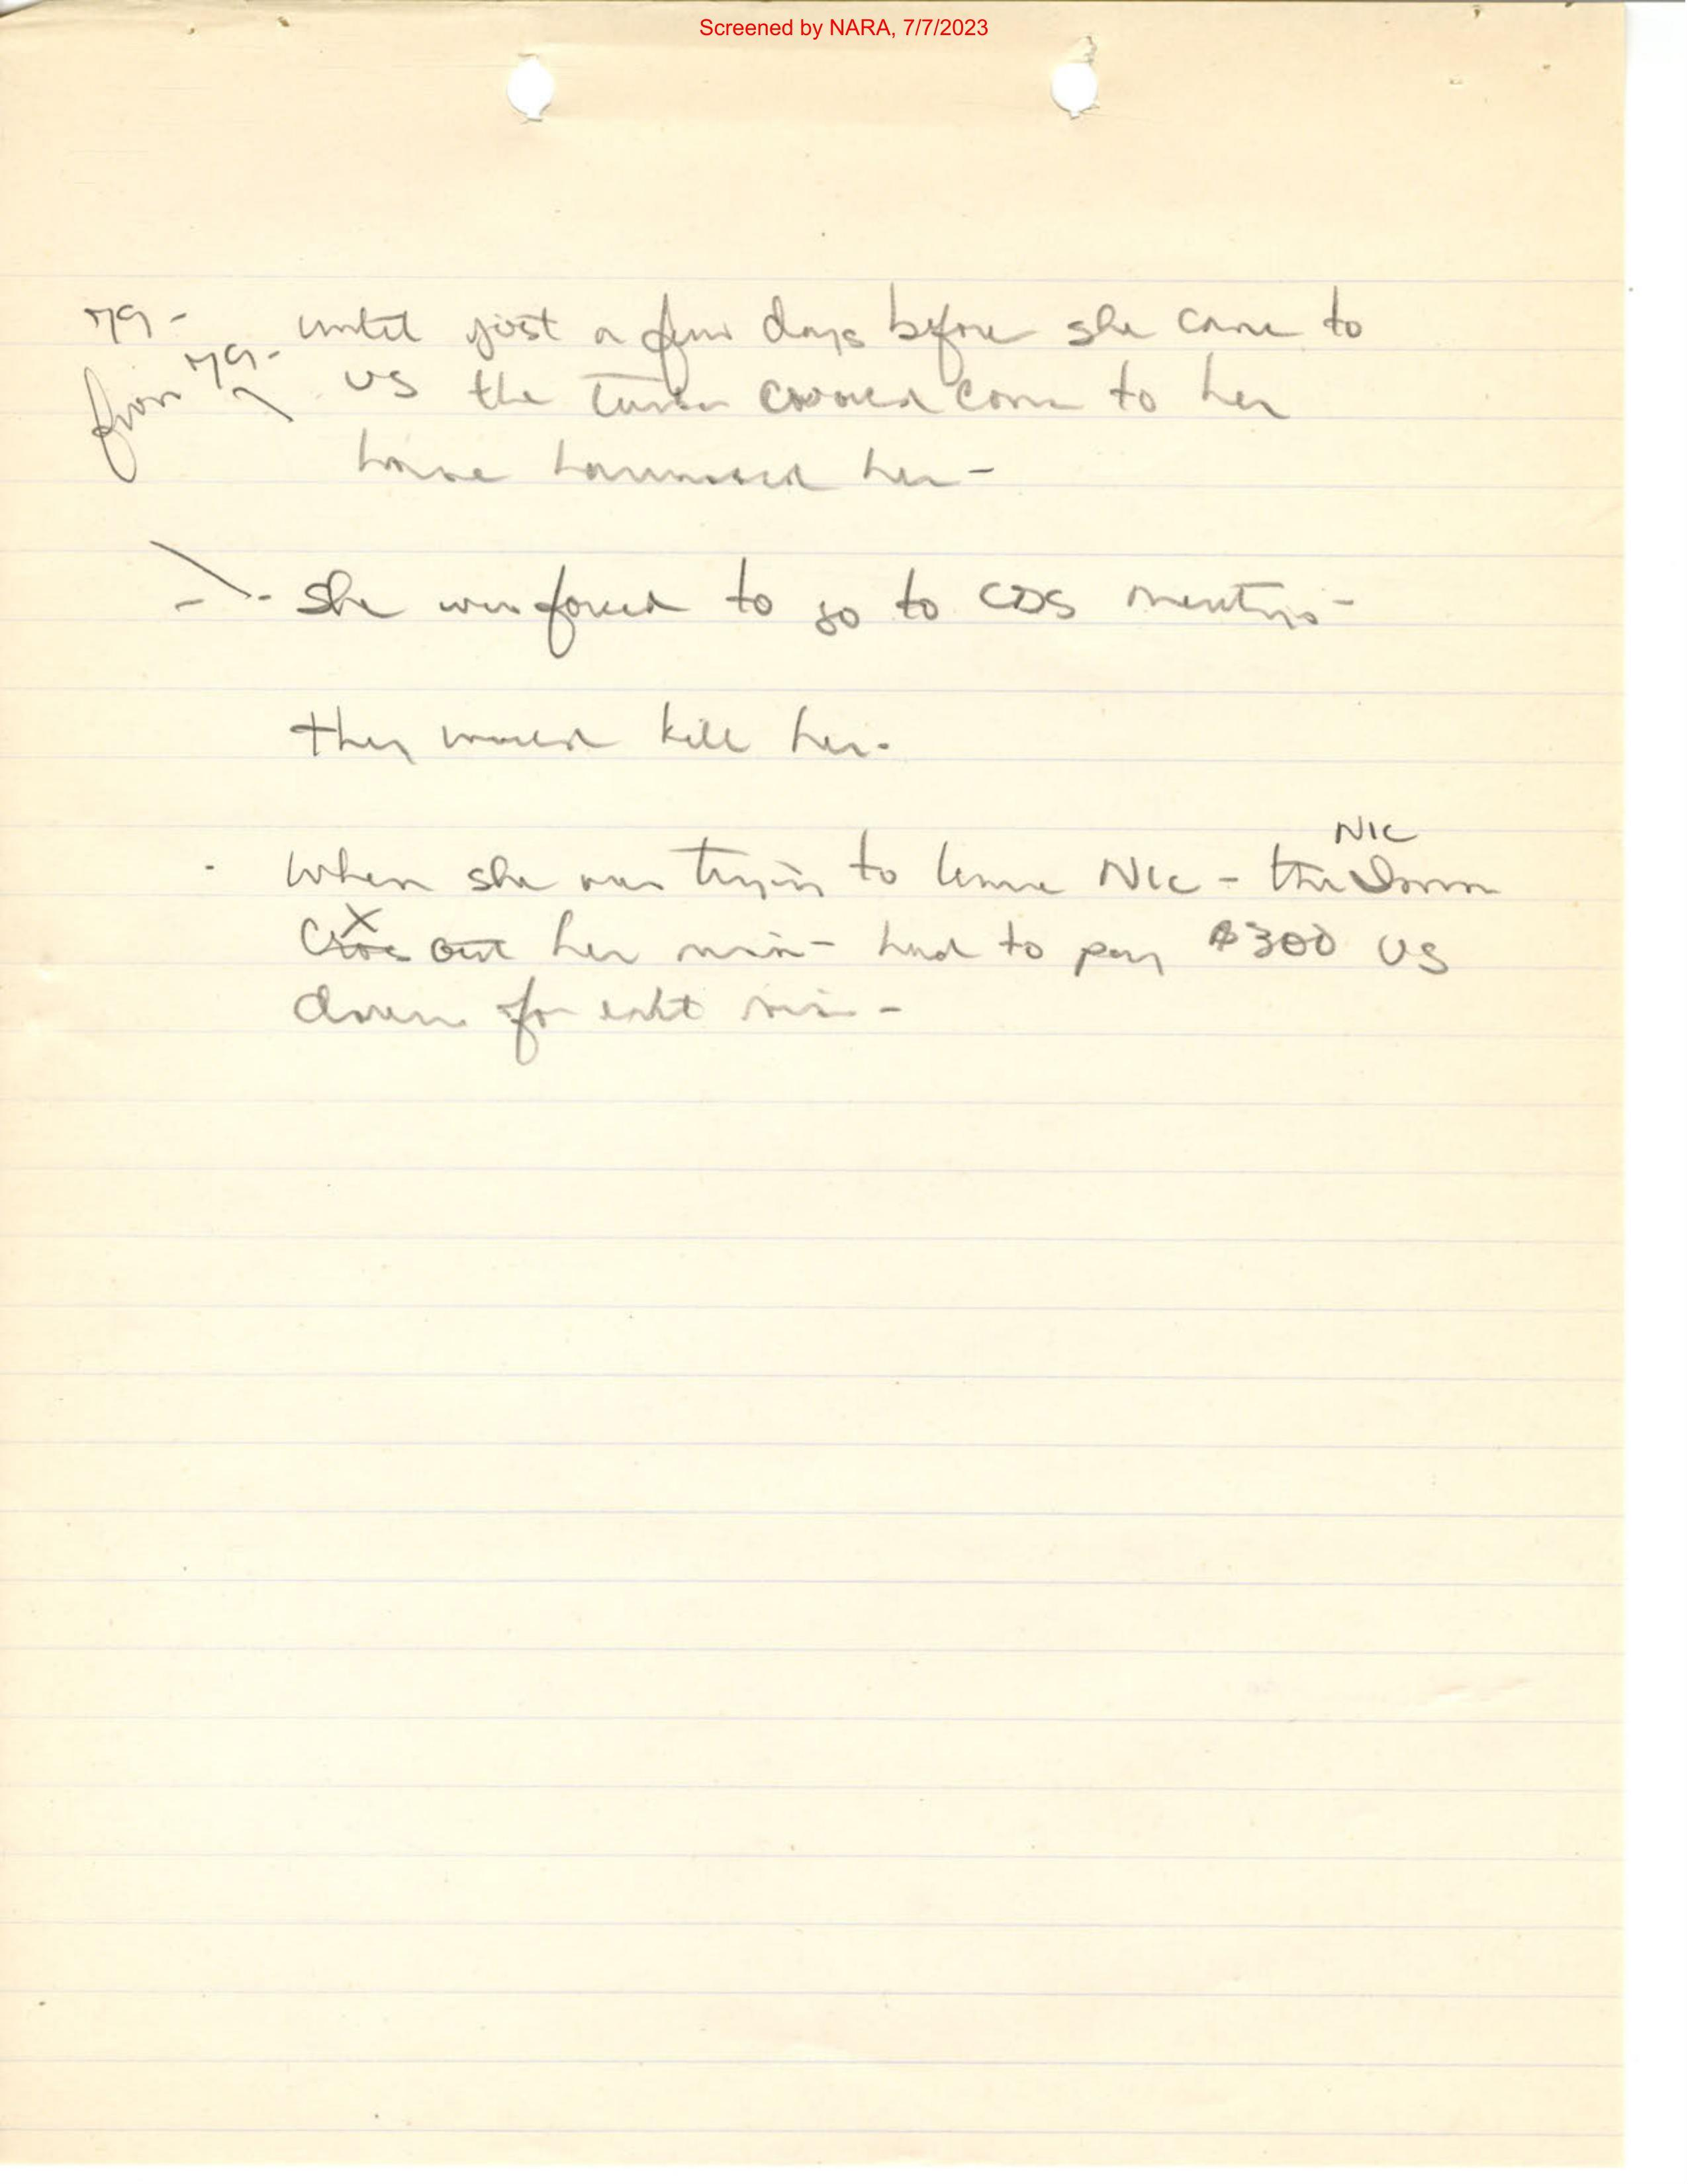 Screened by NARA, 7/7/2023
79-
from 79- until just a few days before she came to
US the would come to her
house harrassed her-
- she was forced to go to CDS meetings-
they would kill her.
NIC
. When she was trying to leave Nic - the
X out her - had to pay $300 US
for exit